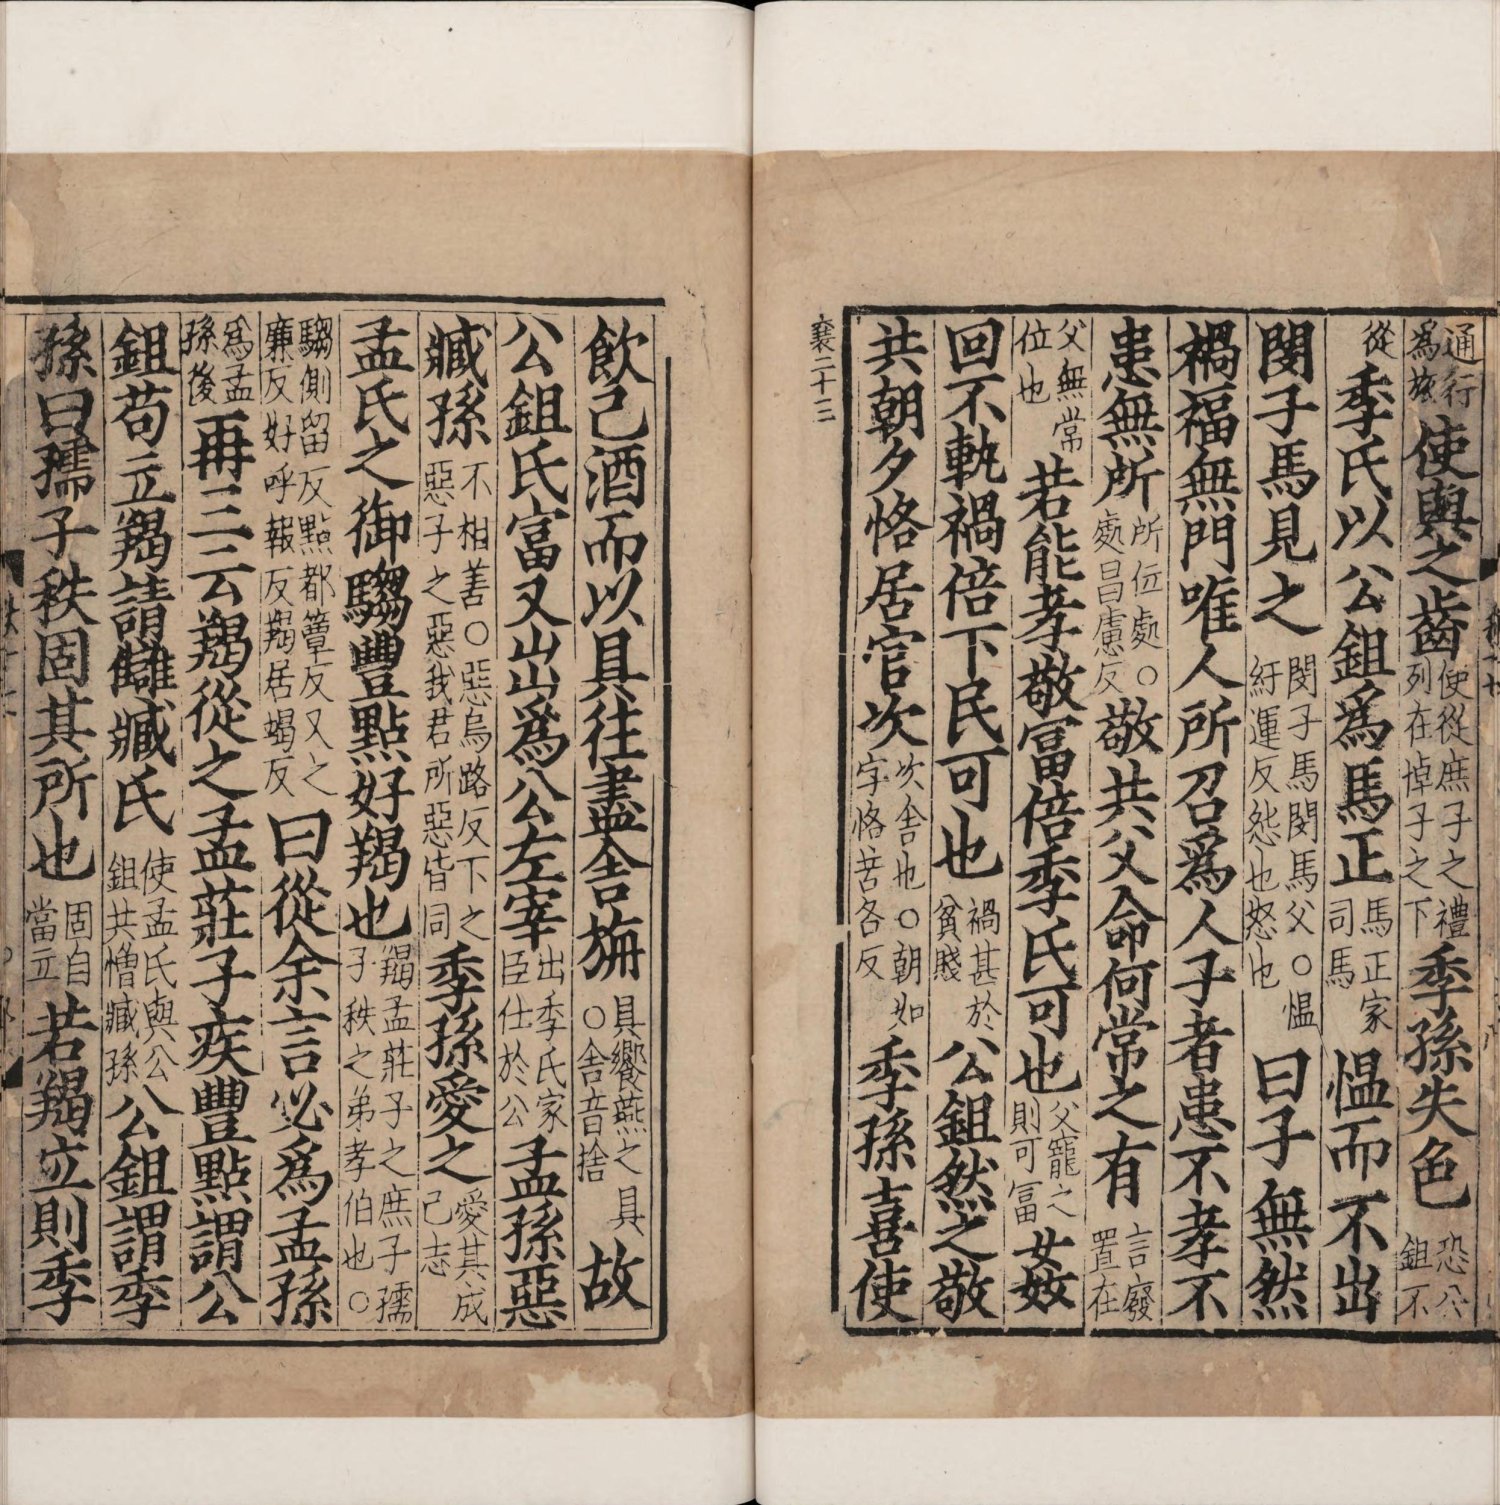 通行為旅使與之齒使從庶子之禮列在悼子之下季孫失色恐公鉏不
從季氏以公鉏為馬正馬正家司馬愠而不出
閔子馬見之閔子馬閔馬父○愠紆運反怨也怒也曰子無然
禍福無門唯人所召為人子者患不孝不
患無所所位處○處昌慮反敬共父命何常之有言廢置在
父無常位也若能孝敬富倍季氏可也父寵之則可富姦
回不軌禍倍下民可也禍甚於貧賤公鉏然之敬
共朝夕恪居官次次舍也○朝如字恪苦各反季孫喜使
襄二十三
飲己酒而以具往盡舍旃具饗燕之具○舍音捨故
公鉏氏富又出為公左宰出季氏家臣仕於公孟孫惡
臧孫不相善○惡烏路反下之惡子之惡我君所惡皆同季孫愛之愛其成己志
孟氏之御騶豐點好羯也羯孟莊子之庶子孺子秩之弟孝伯也○
騶側留反點都簟反又之廉反好呼報反羯居竭反曰從余言必為孟孫
為孟孫後再三云羯從之孟莊子疾豐點謂公
鉏苟立羯請讎臧氏使孟氏與公鉏共憎臧孫公鉏謂季
孫曰孺子秩固其所也固自當立若羯立則季